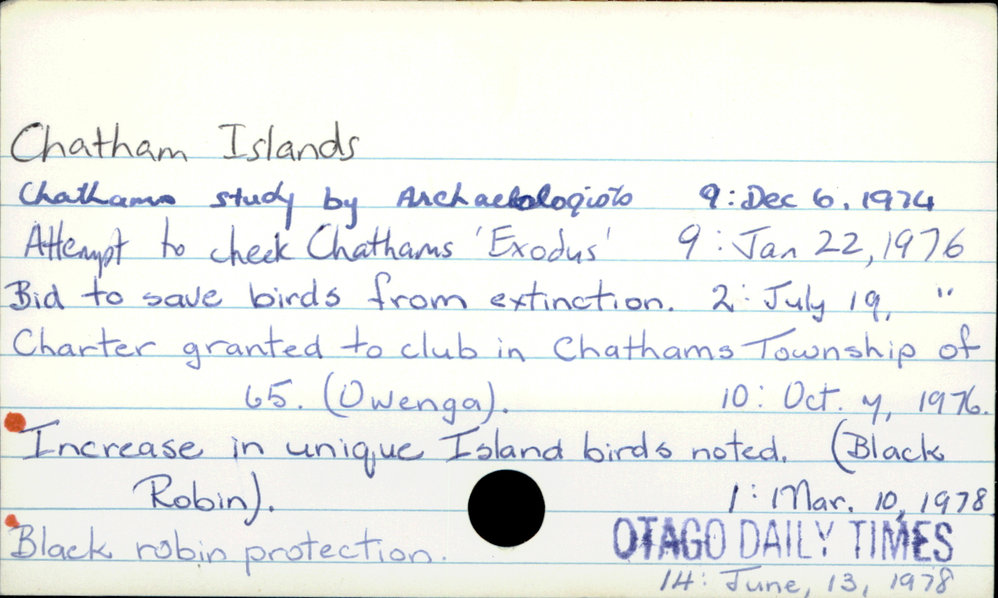 Chatham Islands
Chathams study by Archaeologists 9: Dec 6, 1974
Attempt to check Chathams 'Exodus' 9: Jan 22, 1976
Bid to save birds from extinction. 2: July 19, "
Charter granted to club in Chathams Township of
65. (Owenga). 10: Oct. 7, 1976.
Increase in unique Island birds noted. (Black
Robin). 1: Mar. 10, 1978
Black robin protection. OTAGO DAILY TIMES
14: June, 13, 1978